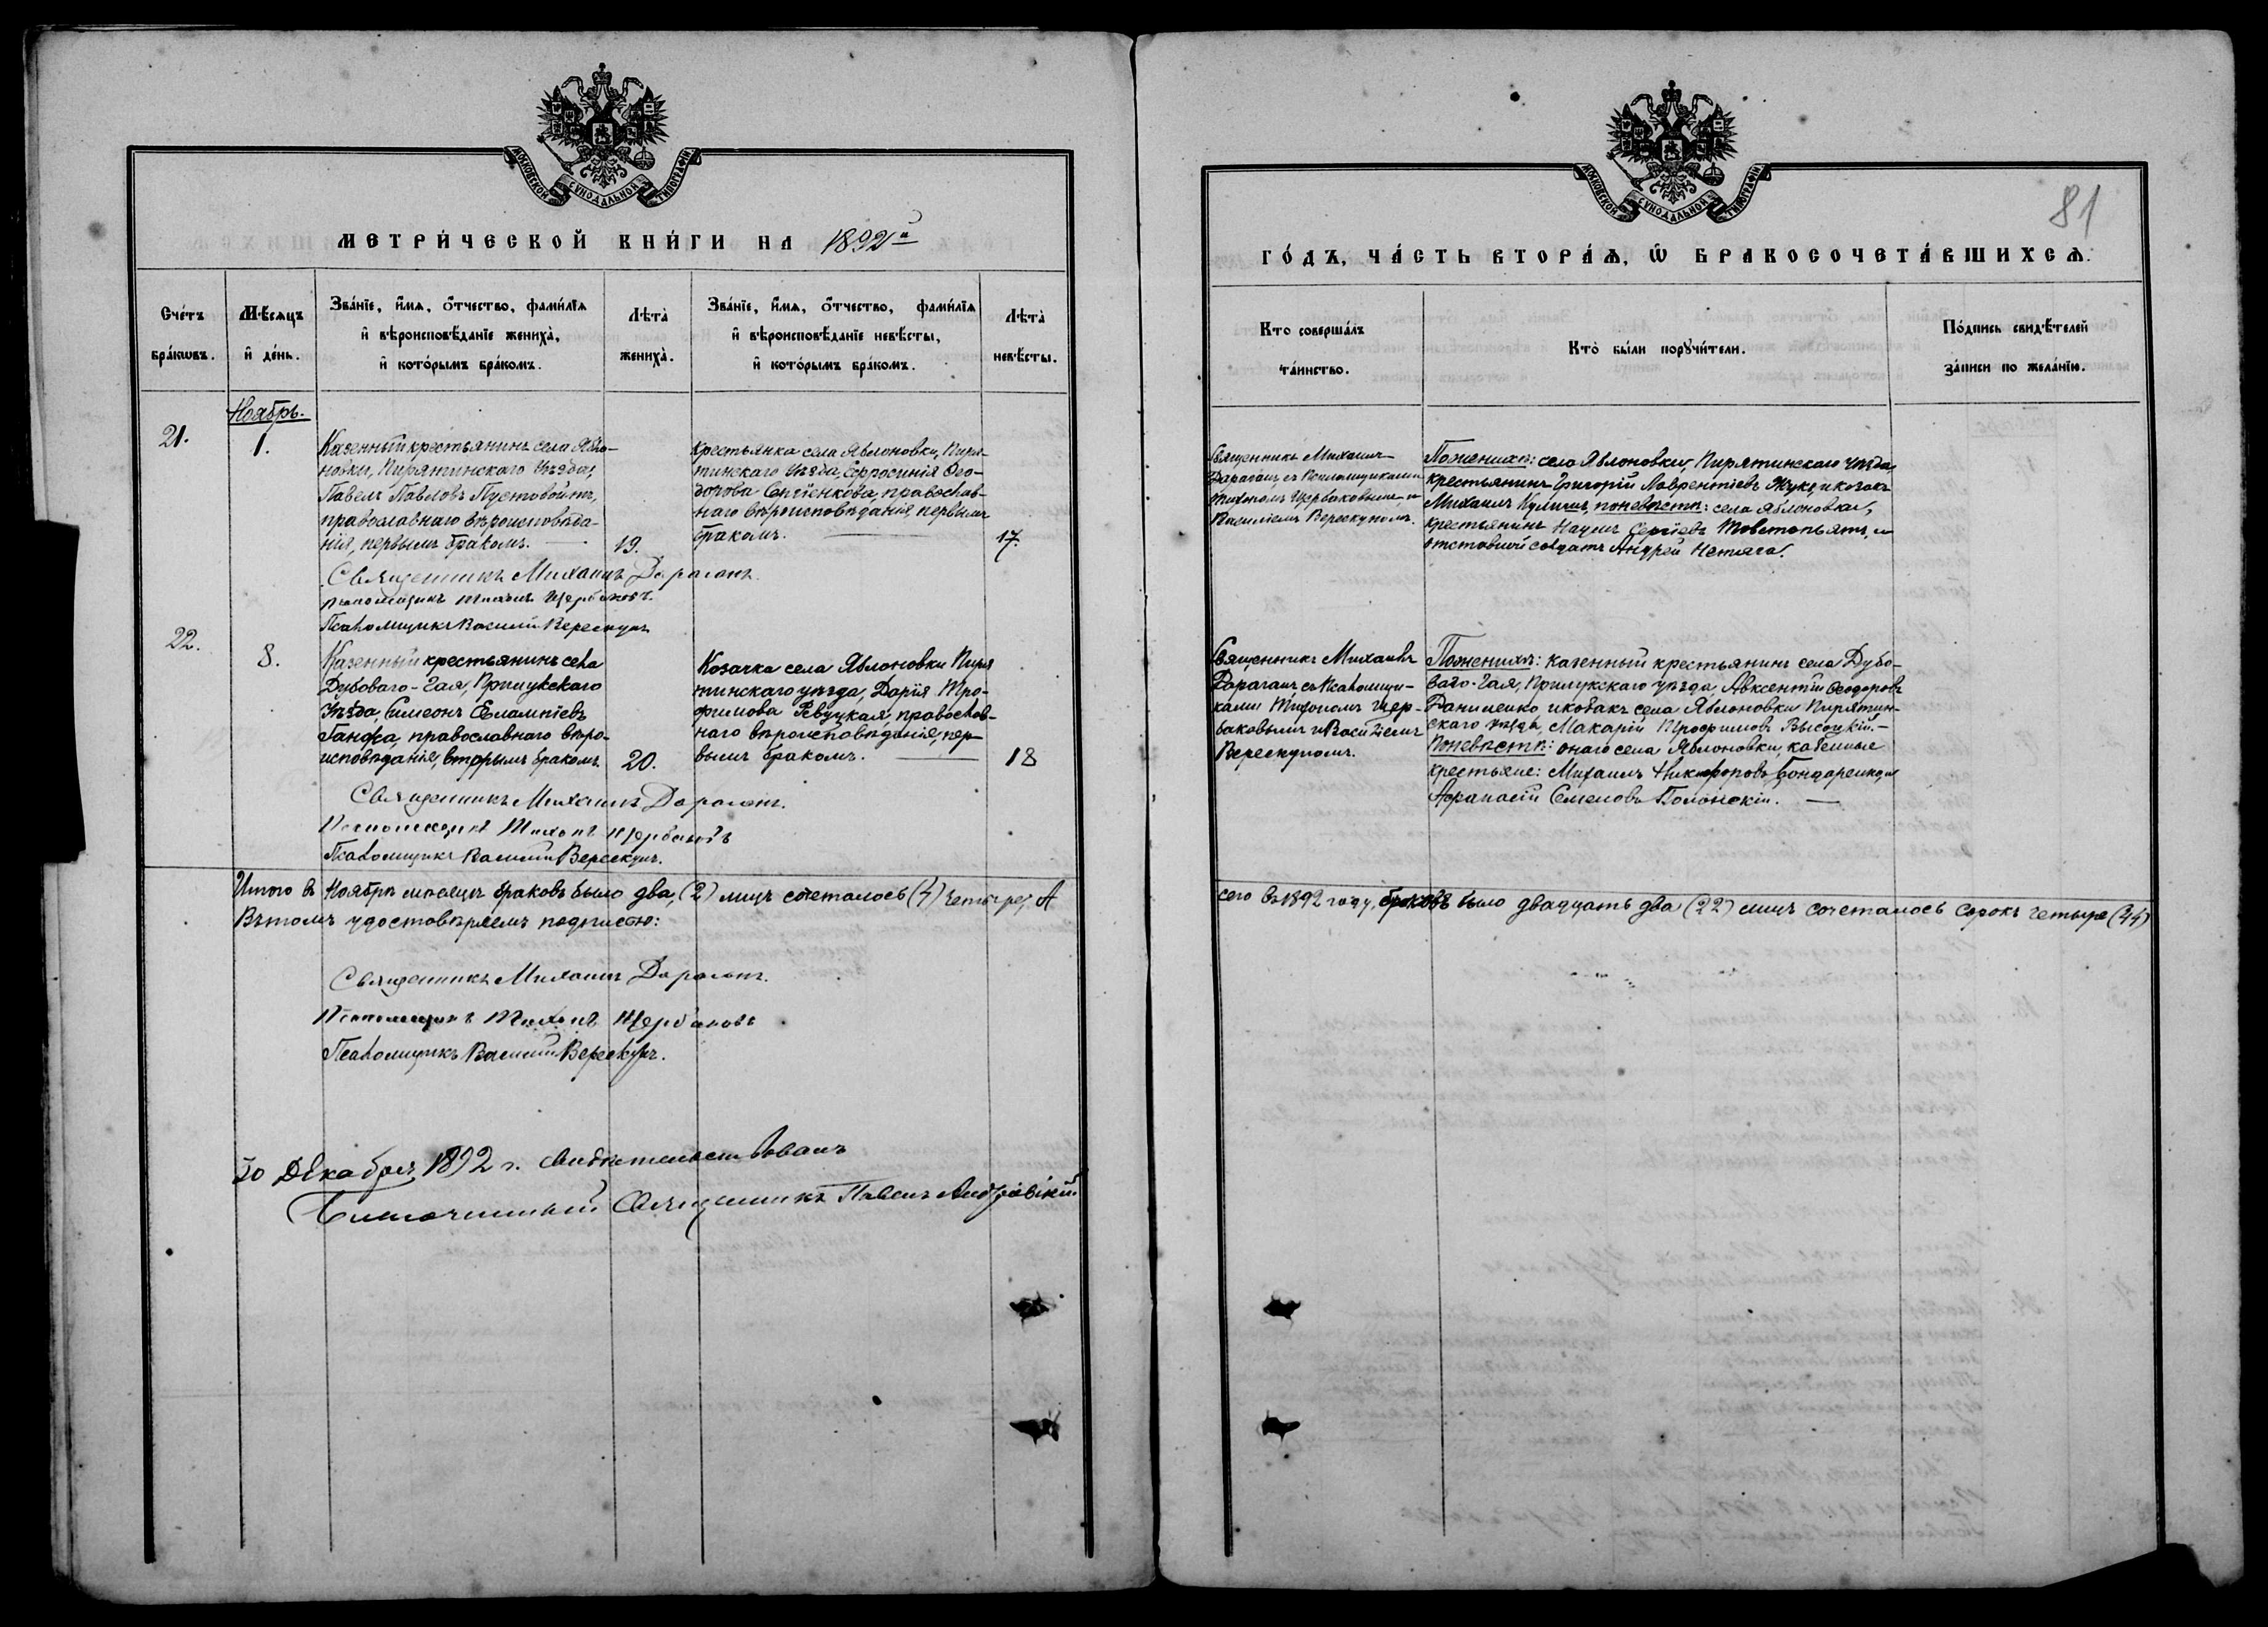 МОСКОВСКОЙ СѴНОДАЛЬНОЙ ТИПОГРАФІИ
МЕТРИ́ЧЕСКОЙ КНИ́ГИ НА 1892й
Сче́тъ бра́ковъ.
Мѣ́сяцъ и҆ де́нь.
Зва́нїе, и҆́мѧ, ѻ҆́тчество, фами́лїѧ
и҆ вѣроисповѣ́данїе жениха̀,
и҆ кото́рымъ бра́комъ.
Лѣта̀
жениха̀.
Зва́нїе, и҆́мѧ, ѻ҆́тчество, фами́лїѧ
и҆ вѣроисповѣ́данїе невѣ́сты,
и҆ кото́рымъ бра́комъ.
Лѣта̀
невѣ́сты.
Ноябрь.
21.
1.
Казенный крестьянинъ села Ябло-
новки, Пирятинскаго Уѣзда,
Павелъ Павловъ Пустовойтъ,
православнаго вѣроисповѣда-
нія, первымъ бракомъ.
19.
Крестьянка села Яблоновки, Пиря-
тинскаго Уѣзда, Ефросинія Ѳео-
дорова Сергіенкова, православ-
наго вѣроисповѣданія, первымъ
бракомъ.
17.
Священникъ Михаилъ Дараганъ.
Псаломщикъ Тихонъ Щербаковъ.
Псаломщикъ Василій Верескунъ
22.
8.
Казенный крестьянинъ села
Дубоваго-Гая, Прилукскаго
Уѣзда, Симеонъ Евлампіевъ
Ганжа, православнаго вѣро-
исповѣданія, вторымъ бракомъ.
20.
Козачка села Яблоновки Пиря
тинскаго уѣзда, Дарія Тро-
фимова Ревуцкая, православ-
наго вѣроисповѣданія, пер-
вымъ бракомъ.
18
Священникъ Михаилъ Дараганъ.
Псаломщикъ Тихонъ Щербаковъ
Псаломщикъ Василій Верескунъ.
Итого въ Ноябрѣ мѣсяцѣ браковъ было два, (2) лицъ сочеталось (4) четыре, А
Въ томъ удостовѣряемъ подписью:
Священникъ Михаилъ Дараганъ.
Псаломщикъ Тихонъ Щербаковъ
Псаломщикъ Василій Верескунъ.
30 Декабря 1892 г. Свидѣтельствовалъ
Благочинный Священникъ Павелъ
МОСКОВСКОЙ СѴНОДАЛЬНОЙ ТИПОГРАФІИ
81
ГО́ДЪ, ЧА́СТЬ ВТОРА́Ѧ, Ѡ҆ БРАКОСОЧЕТА́ВШИХСѦ.
Кто соверша́лъ
та́инство.
Кто̀ бы́ли порꙋчи́тели.
По́дпись свидѣ́телей
за́писи по жела́нїю.
Священникъ Михаилъ
Дараганъ съ Псаломщиками
Тихономъ Щербаковымъ и
Василіемъ Верескуномъ.
По женихѣ: села Яблоновки, Пирятинскаго Уѣзда
крестьянинъ Григорій Лаврентіевъ Жукъ, и козакъ
Михаилъ Куличъ, по невѣстѣ: села Яблоновки,
крестьянинъ Наумъ Сергіевъ Товстопьятъ, и
отставной солдатъ Андрей Нетяга.
Священникъ Михаилъ
Дараганъ съ Псаломщи-
ками Тихономъ Щер-
баковымъ и Василіемъ
Верескуномъ.
По женихѣ: казенный крестьянинъ села Дубо-
ваго-Гая, Прилукскаго уѣзда, Авксентій Ѳеодоровъ
Даниленко и козакъ села Яблоновки Пирятин-
скаго уѣзда, Макарій Трофимовъ Высоцкій.-
По невѣстѣ: онаго села Яблоновки, казенные
крестьяне: Михаилъ Никифоровъ Бондаренко, и
Афанасій Семеновъ Полонскій.
сего въ 1892 году, браковъ было двадцать два (22) лицъ сочеталось сорокъ четыре (44)